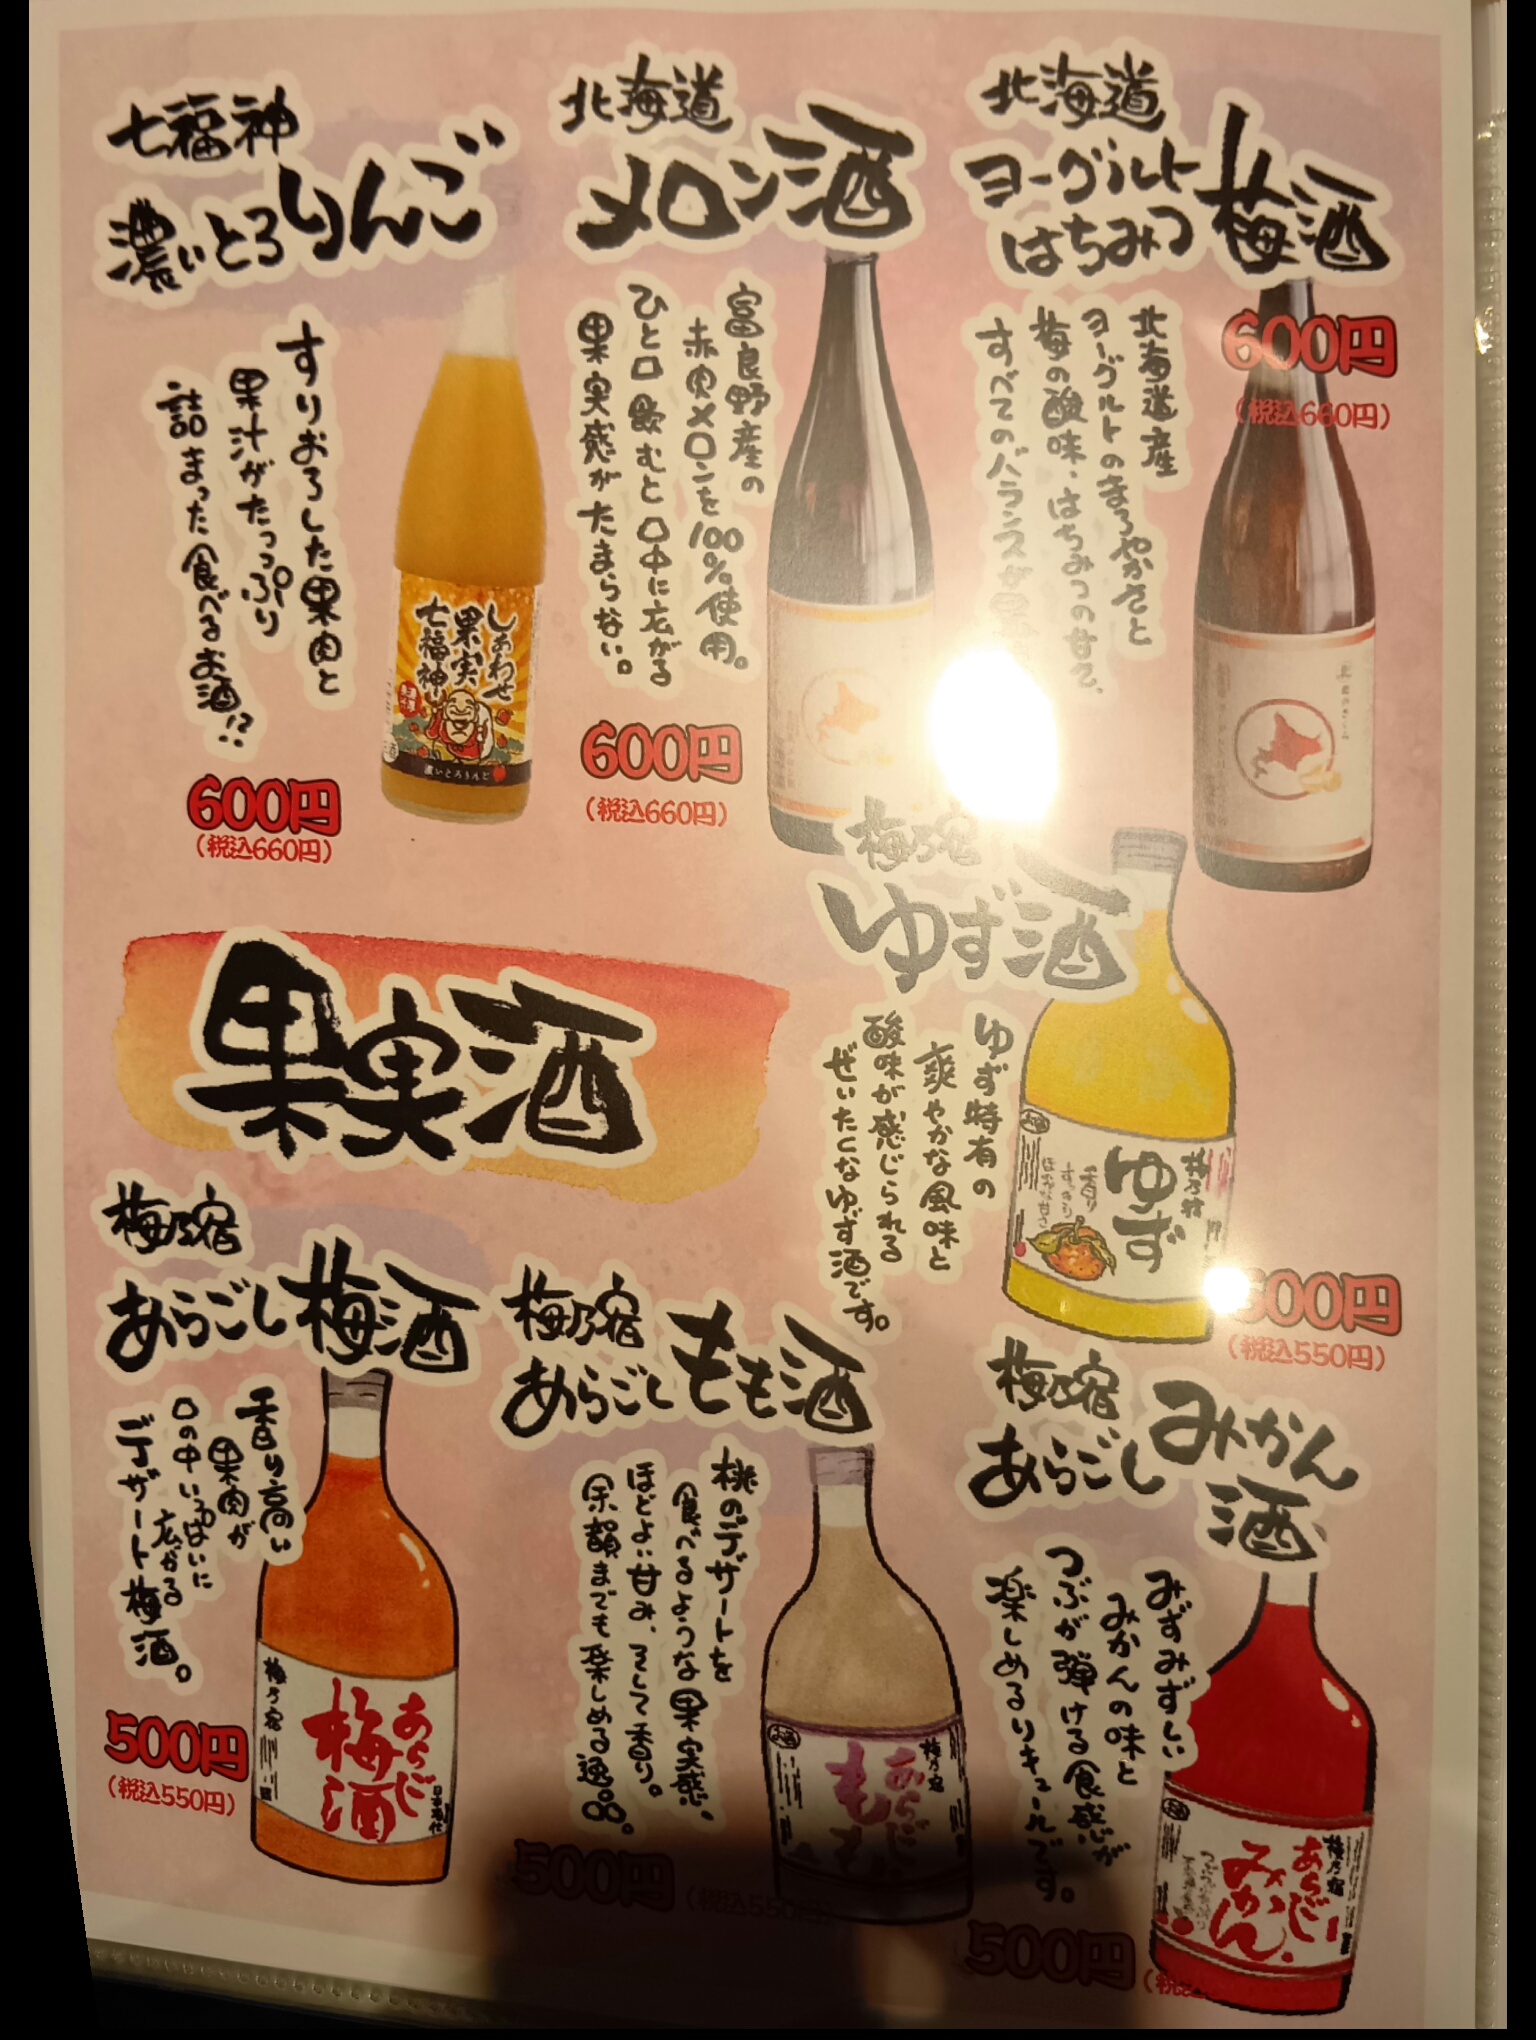 七福神
濃いとろりんご
すりおろした果肉と
果汁がたっっぷり
詰まった食べるお酒!?
600円
(税込660円)
しあわせ
果実
七福神
濃いとろりんご
北海道
メロン酒
富良野産の
赤肉メロンを100%使用。
ひと口飲むと口中に広がる
果実感がたまらない。
600円
(税込660円)
北海道
ヨーグルト
はちみつ梅酒
北海道産
ヨーグルトのまろやかさと
梅の酸味、はちみつの甘さ、
すべてのバランスが
600円
(税込660円)
果実酒
梅乃宿
ゆず酒
ゆず特有の
爽やかな風味と
酸味が感じられる
ぜいたくなゆず酒です。
00円
(税込550円)
梅乃宿
ゆず
梅乃宿
あらごし梅酒
香り高い
果肉が
口の中いっぱいに
広がる
デザート梅酒。
500円
(税込550円)
梅乃宿
あらごし
梅酒
梅乃宿
あらごしもも酒
桃のデザートを
食べるような果実感、
ほどよい甘み、そして香り。
余韻までも楽しめる逸品。
500円
(税込550円)
梅乃宿
あらごし
もも
梅乃宿
あらごしみかん酒
みずみずしい
みかんの味と
つぶが弾ける食感が
楽しめるリキュールです。
500円
(税込
梅乃宿
あらごし
みかん